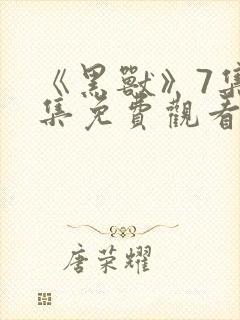 《黑獸》7集
集免費觀看
唐荣耀